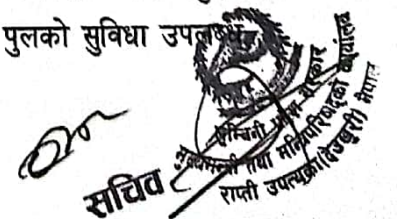 पुलको सुविधा उपलब्ध
लुम्बिनी प्रदेश सरकार
मुख्यमन्त्री तथा मन्त्रिपरिषद्को कार्यालय
राप्ती उपत्यका (देउखुरी) नेपाल
सचिव